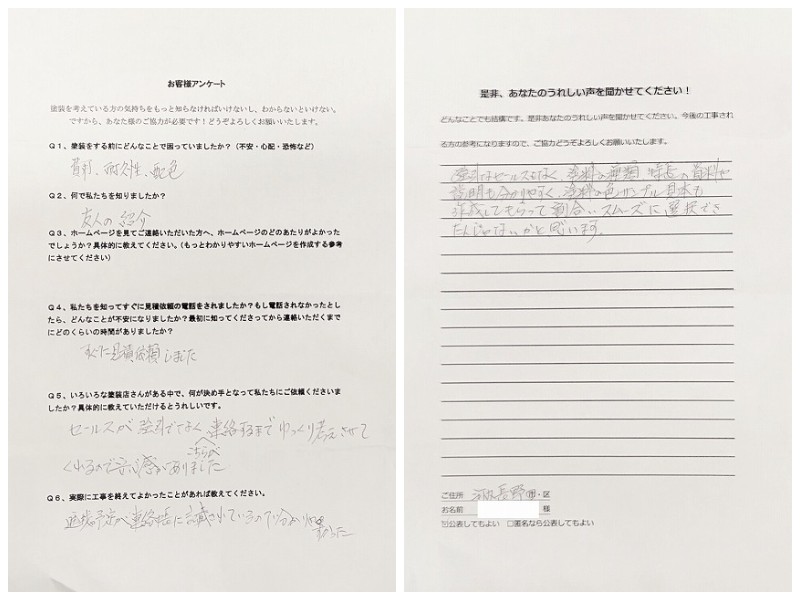 お客様アンケート
塗装を考えている方の気持ちをもっと知らなければいけないし、わからないといけない。
ですから、あなた様のご協力が必要です！どうぞよろしくお願いいたします。
Q１、塗装をする前にどんなことで困っていましたか？（不安・心配・恐怖など）
費用、耐久性、配色
Q２、何で私たちを知りましたか？
友人の紹介
Q３、ホームページを見てご連絡いただいた方へ、ホームページのどのあたりがよかった
でしょうか？具体的に教えてください。（もっとわかりやすいホームページを作成する参考
にさせてください）
Q４、私たちを知ってすぐに見積依頼の電話をされましたか？もし電話されなかったとし
たら、どんなことが不安になりましたか？最初に知ってくださってから連絡いただくまで
にどのくらいの時間がありましたか？
すぐに見積依頼しました
Q５、いろいろな塗装店さんがある中で、何が決め手となって私たちにご依頼くださいま
したか？具体的に教えていただけるとうれしいです。
セールスが強引でなく連絡するまでゆっくり考えさせて
こちらが
くれるので安心感がありました
Q６、実際に工事を終えてよかったことがあれば教えてください。
連絡に記載されているので分かりやすかった
是非、あなたのうれしい声を聞かせてください！
どんなことでも結構です。是非あなたのうれしい声を聞かせてください。今後の工事され
る方の参考になりますので、ご協力どうぞよろしくお願いいたします。
強引なセールスもなく、塗料の種類、特長の資料や
説明も分かりやすく、塗料の色サンプル見本も
作成してもらって割合いスムーズに選択でき
たんじゃないかと思います。
ご住所 河内長野市・区
お名前 様
☑公表してもよい □匿名なら公表してもよい